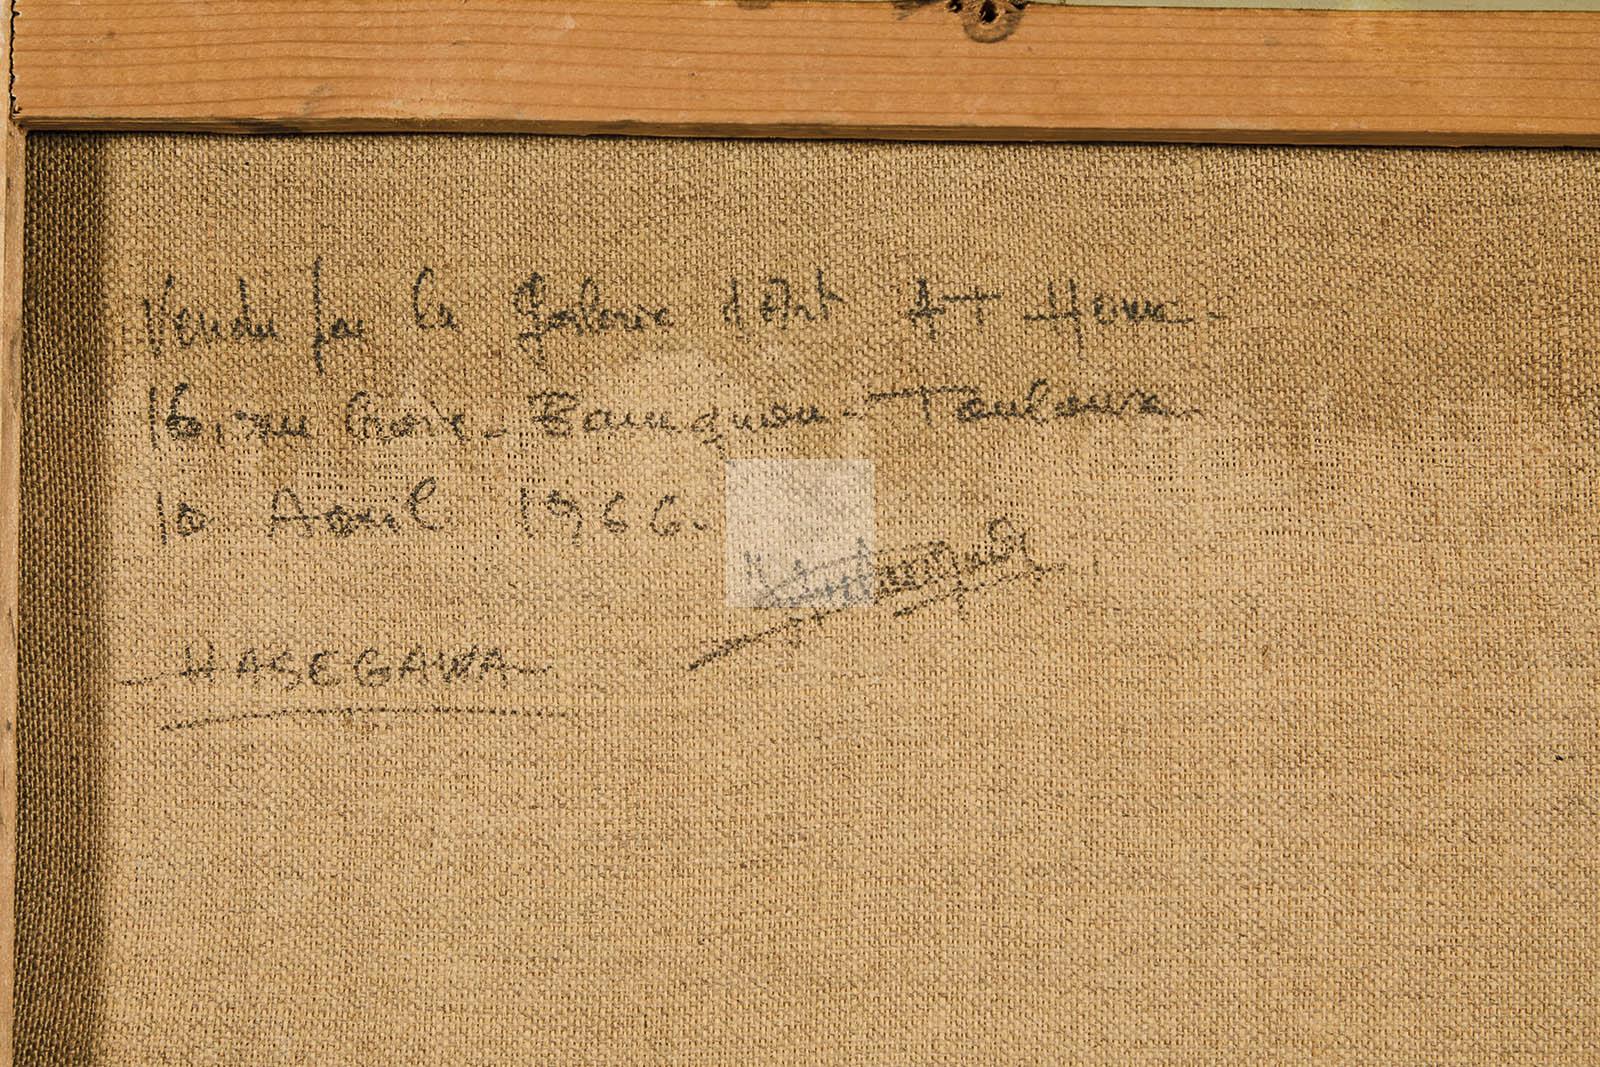 Vendu par la Galerie d'Art At Home.
16, rue Croix-Baragnon - Toulouse -
10 Avril 1966.
HASEGAWA